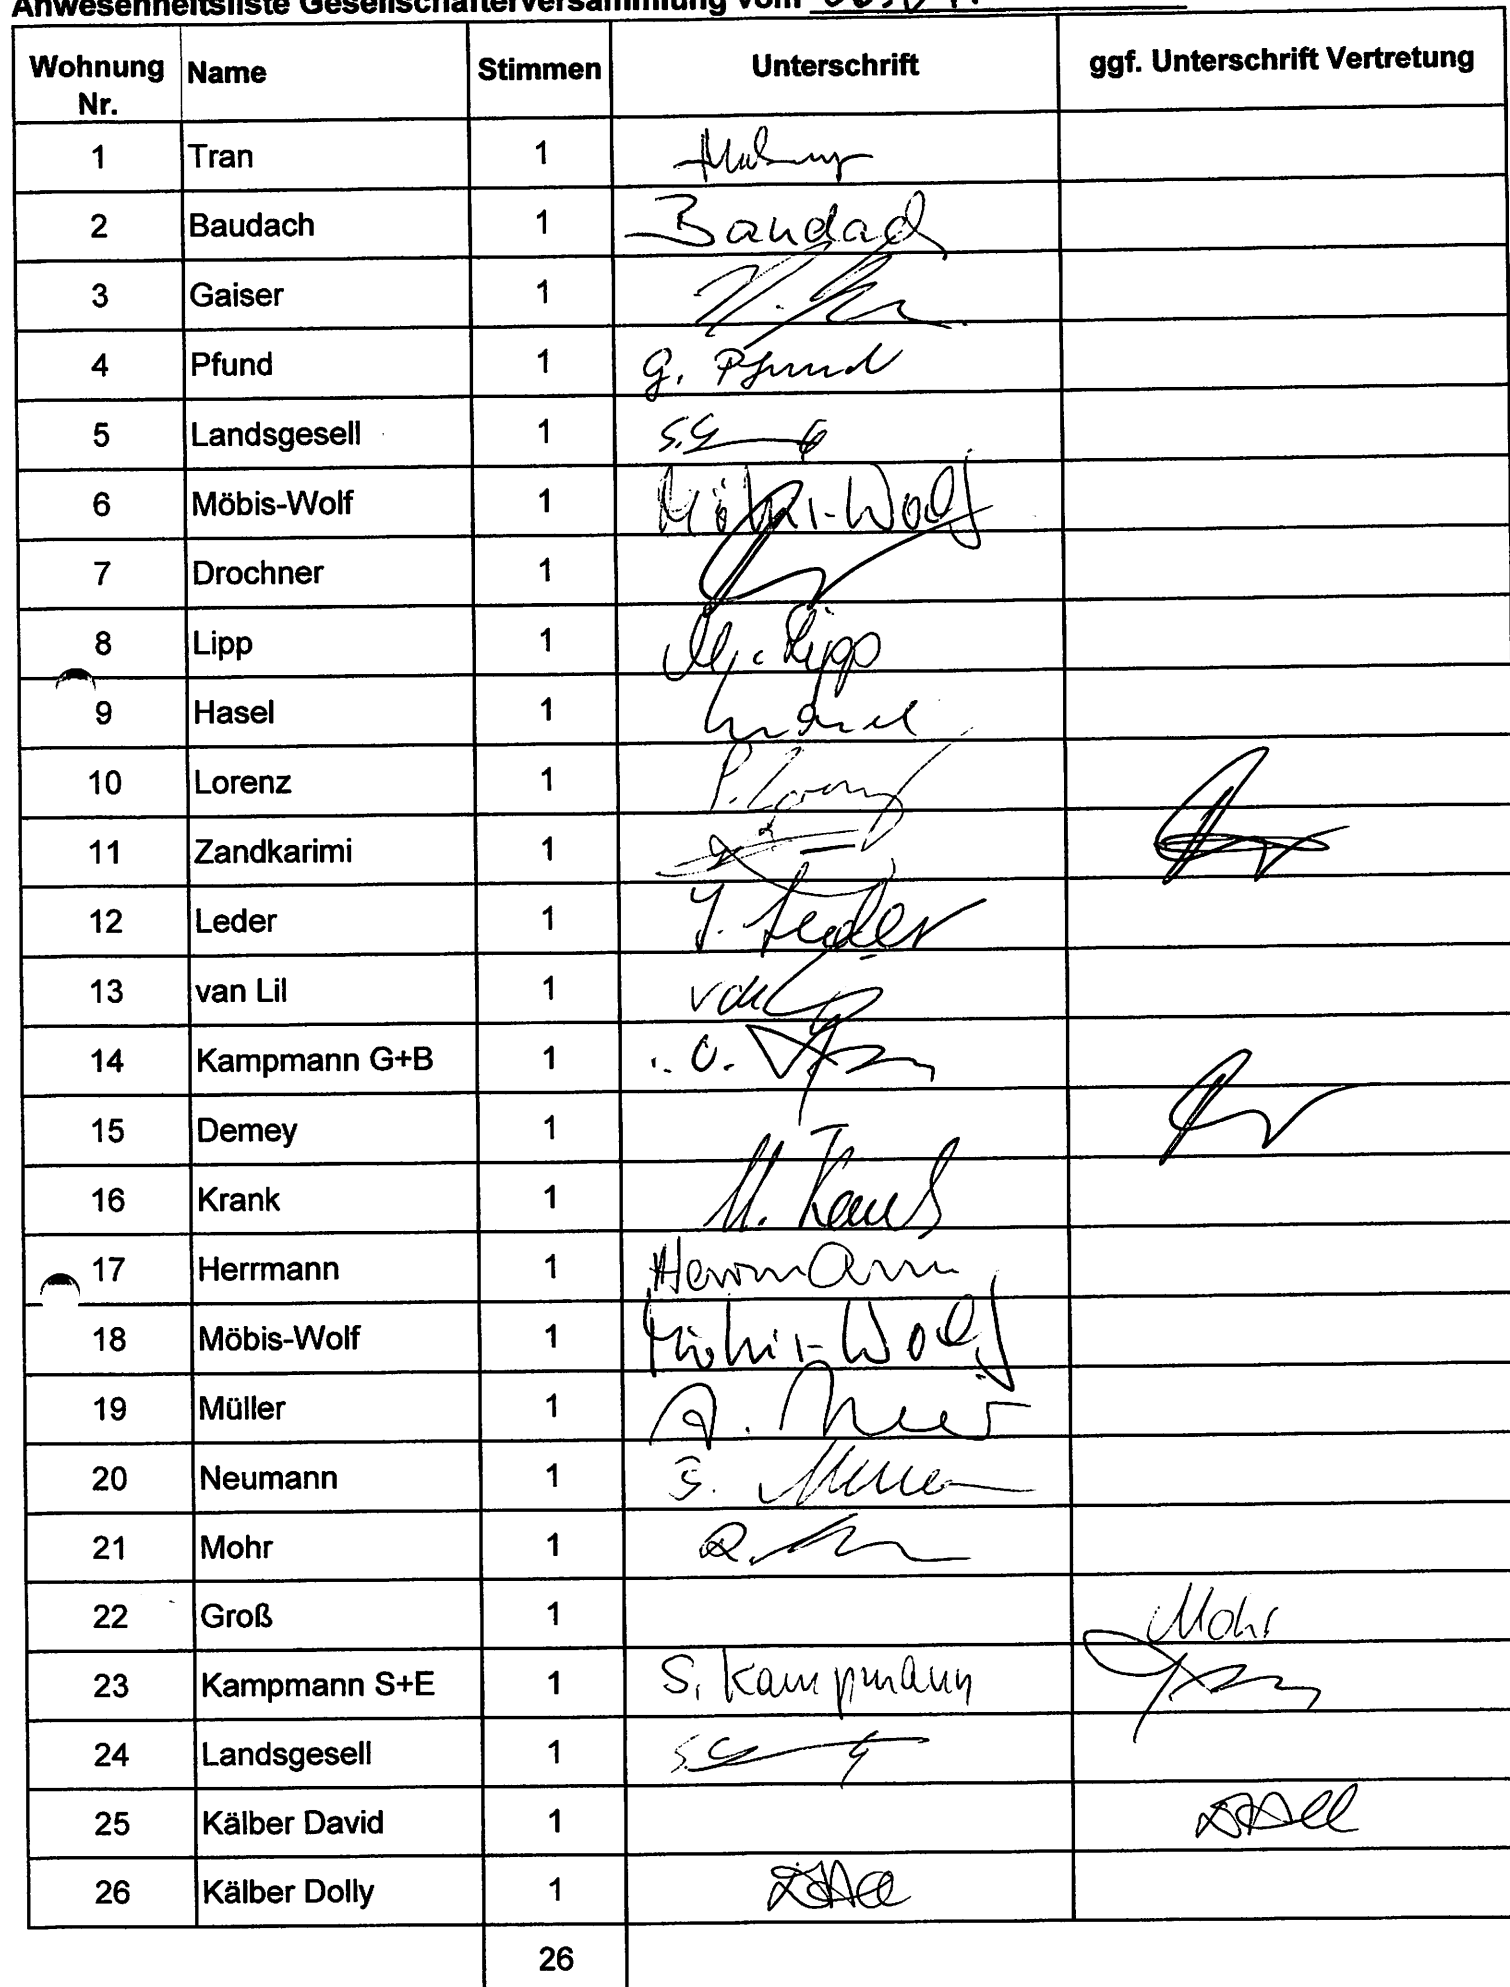 Anwesenheitsliste Gesellschafterversammlung vom
Wohnung Nr. Name Stimmen Unterschrift ggf. Unterschrift Vertretung
1 Tran 1
2 Baudach 1 Baudach
3 Gaiser 1
4 Pfund 1 G. Pfund
5 Landsgesell 1
6 Möbis-Wolf 1 Möbis-Wolf
7 Drochner 1
8 Lipp 1 M. Lipp
9 Hasel 1
10 Lorenz 1 P. Lorenz
11 Zandkarimi 1
12 Leder 1 J. Leder
13 van Lil 1
14 Kampmann G+B 1
15 Demey 1
16 Krank 1 M. Krank
17 Herrmann 1 Herrmann
18 Möbis-Wolf 1 Möbis-Wolf
19 Müller 1
20 Neumann 1
21 Mohr 1
22 Groß 1 Mohr
23 Kampmann S+E 1 S. Kampmann
24 Landsgesell 1
25 Kälber David 1
26 Kälber Dolly 1
26